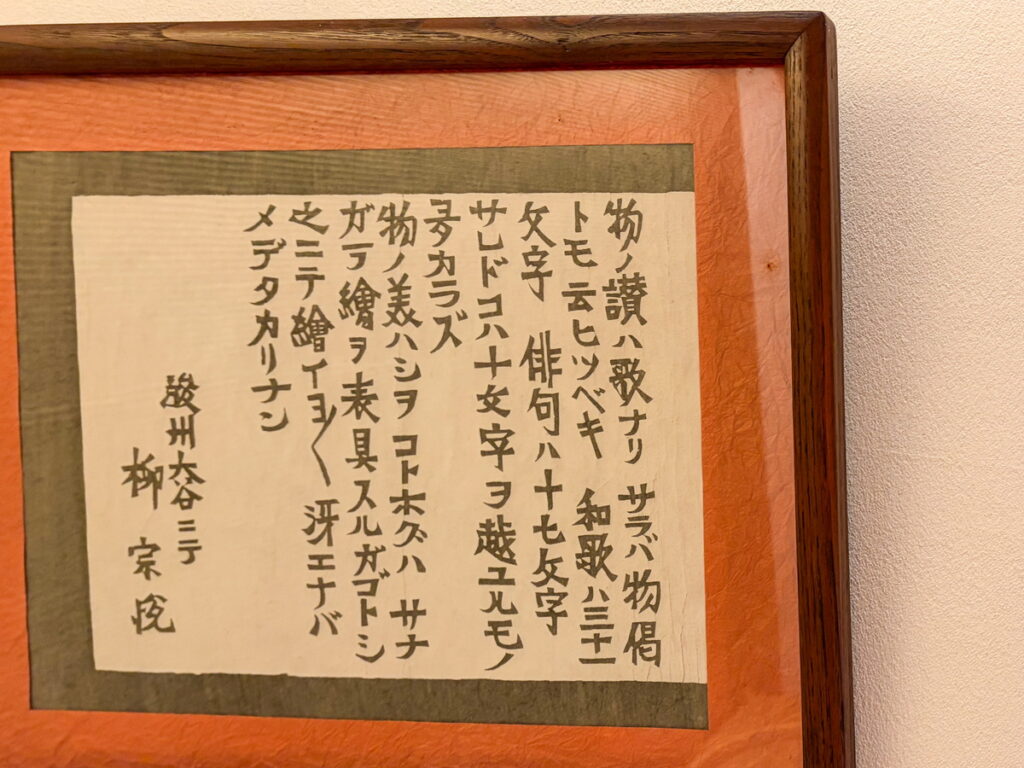 物ノ讃ハ歌ナリ サラバ物偈
トモ云ヒツベキ 和歌ハ三十一
文字 俳句ハ十七文字
サレドコハ十文字ヲ越ユルモノ
夛カラズ
物ノ美ハシヲ コトホグハ サナ
ガラ繪ヲ表具スルガゴトシ
之ニテ繪イヨ〱 冴エナバ
メデタカリナン
駿州大谷ニテ
柳 宗悦